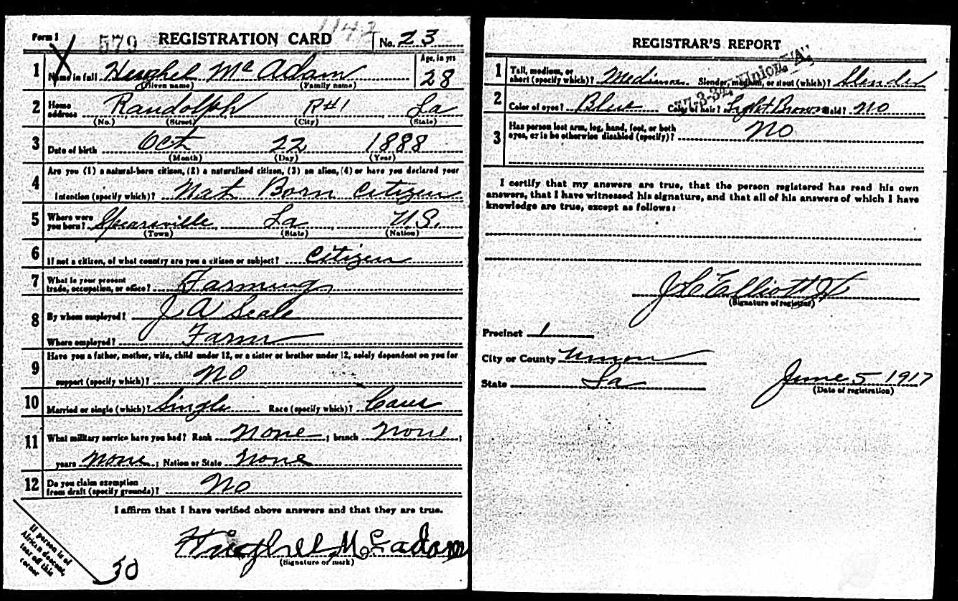 Form 1 579 REGISTRATION CARD 1142 No. 23
1 Name in full Hughel Mc Adam Age, in yrs 28
(Given name) (Family name)
2 Home address Randolph R#1 La
(No.) (Street) (City) (State)
3 Date of birth Oct 22 1888
(Month) (Day) (Year)
Are you (1) a natural-born citizen, (2) a naturalized citizen, (3) an alien, (4) or have you declared your
4 intention (specify which)? Nat Born Citizen
5 Where were you born? Spearsville La U.S.
(Town) (State) (Nation)
6 If not a citizen, of what country are you a citizen or subject? Citizen
7 What is your present trade, occupation, or office? Farming
8 By whom employed? J A Seale
Where employed? Farm
9 Have you a father, mother, wife, child under 12, or a sister or brother under 12, solely dependent on you for
support (specify which)? NO
10 Married or single (which)? Single Race (specify which)? Caus
11 What military service have you had? Rank None; branch None;
years None; Nation or State None
12 Do you claim exemption from draft (specify grounds)? No
I affirm that I have verified above answers and that they are true.
Hughel McAdam
(Signature or mark)
If person is of
African descent,
tear off this
corner
30
REGISTRAR'S REPORT
1 Tall, medium, or short (specify which)? Medium Slender, medium, or stout (which)? Slender
2 Color of eyes? Blue Color of hair? Light Brown Bald? NO
3 Has person lost arm, leg, hand, foot, or both eyes, or is he otherwise disabled (specify)? NO
I certify that my answers are true, that the person registered has read his own
answers, that I have witnessed his signature, and that all of his answers of which I have
knowledge are true, except as follows:
(Signature of registrar)
Precinct 1
City or County Union
State La
June 5 1917
(Date of registration)